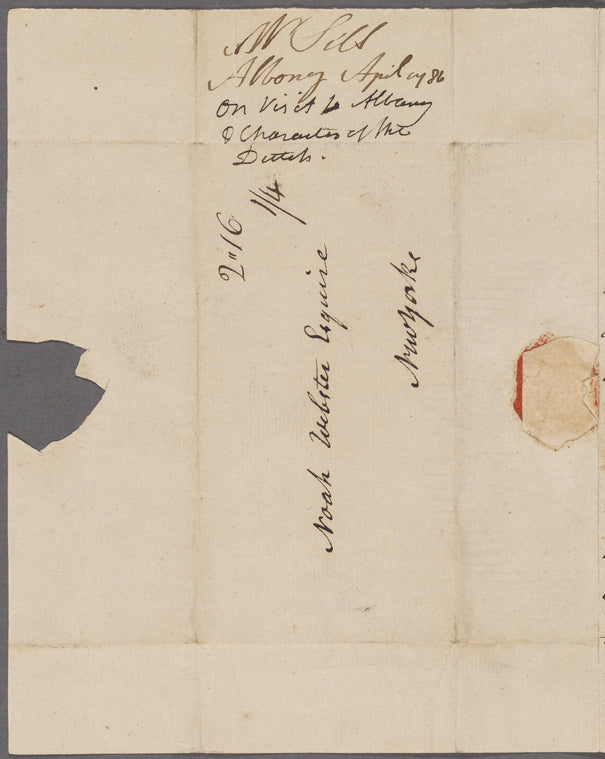 Mr Sill
Albany April 1786
On Visit to Albany
& Character of the
Dutch.
2"16
1/4
Noah Webster Esquire
New Yorke